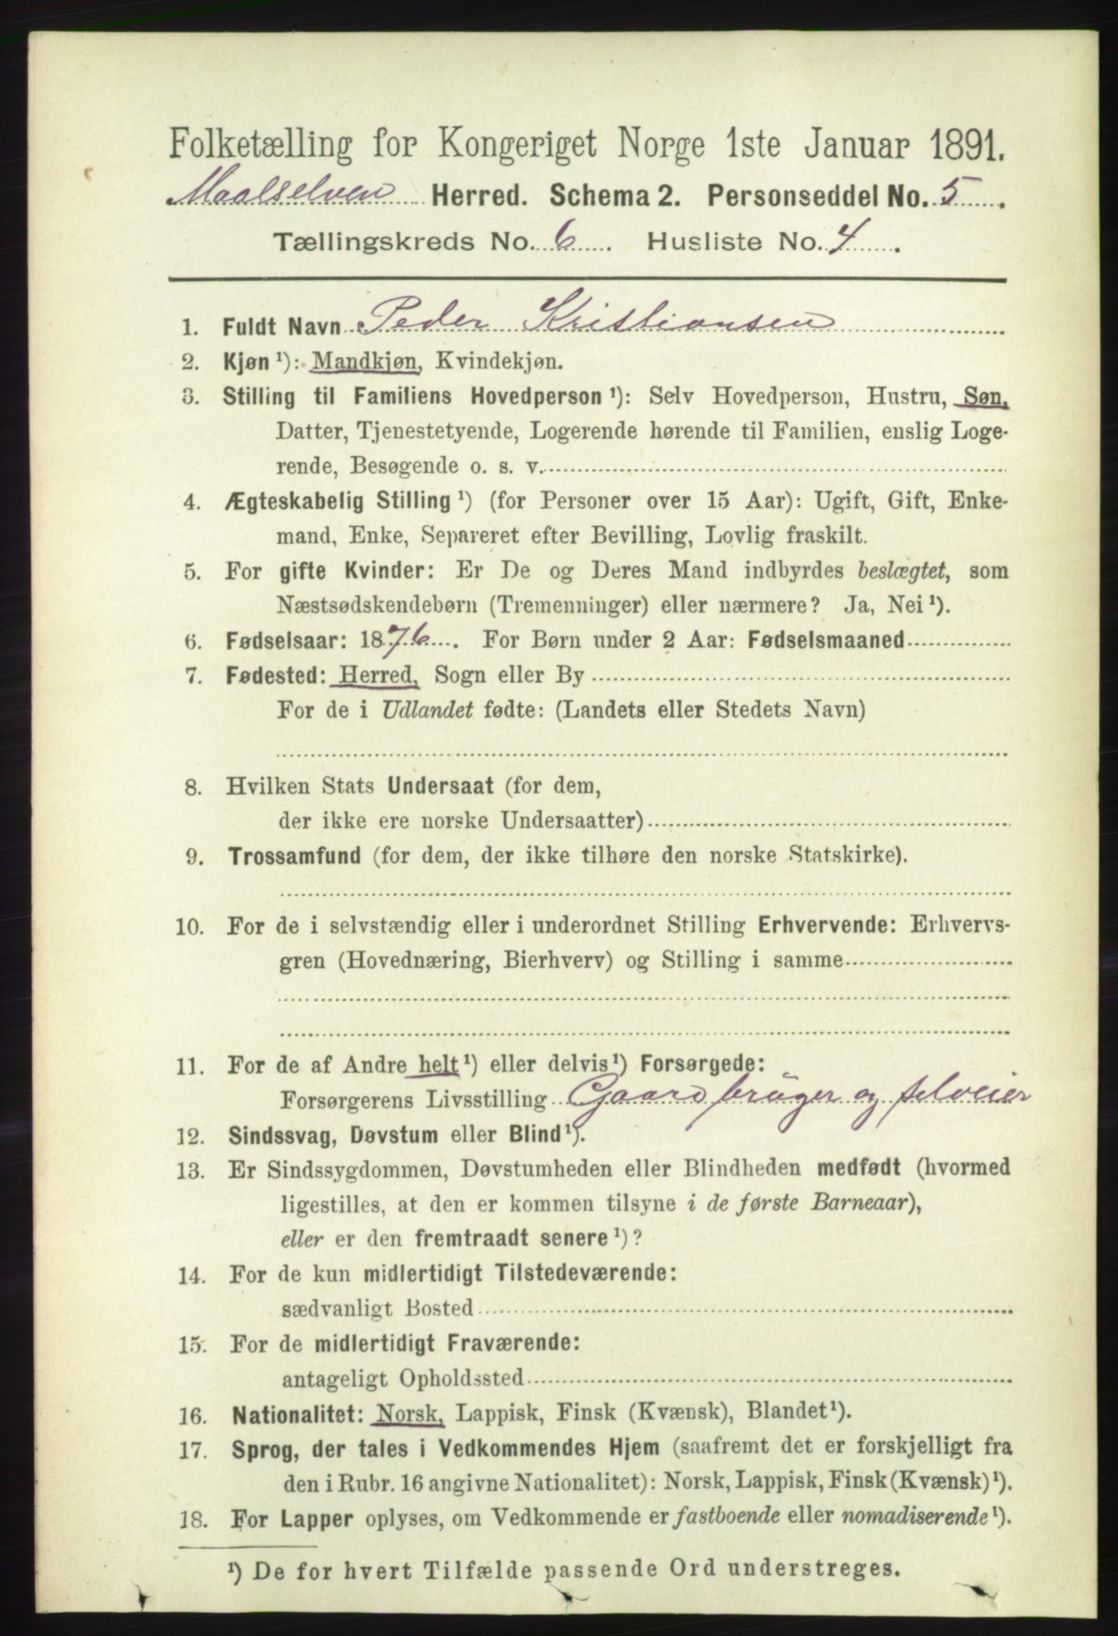 Folketælling for Kongeriget Norge 1ste Januar 1891.
Maalselven Herred. Schema 2. Personseddel No. 5.
Tællingskreds No. 6. Husliste No. 4.
1. Fuldt Navn Peder Kristiansen
2. Kjøn ¹): Mandkjøn, Kvindekjøn.
3. Stilling til Familiens Hovedperson ¹): Selv Hovedperson, Hustru, Søn,
Datter, Tjenestetyende, Logerende hørende til Familien, enslig Loge-
rende, Besøgende o. s. v.
4. Ægteskabelig Stilling ¹) (for Personer over 15 Aar): Ugift, Gift, Enke-
mand, Enke, Separeret efter Bevilling, Lovlig fraskilt.
5. For gifte Kvinder: Er De og Deres Mand indbyrdes beslægtet, som
Næstsødskendebørn (Tremenninger) eller nærmere? Ja, Nei ¹).
6. Fødselsaar: 1876. For Børn under 2 Aar: Fødselsmaaned
7. Fødested: Herred, Sogn eller By
For de i Udlandet fødte: (Landets eller Stedets Navn)
8. Hvilken Stats Undersaat (for dem,
der ikke ere norske Undersaatter)
9. Trossamfund (for dem, der ikke tilhøre den norske Statskirke).
10. For de i selvstændig eller i underordnet Stilling Erhvervende: Erhvervs-
gren (Hovednæring, Bierhverv) og Stilling i samme
11. For de af Andre helt ¹) eller delvis ¹) Forsørgede:
Forsørgerens Livsstilling Gaardbrüger og selveier
12. Sindssvag, Døvstum eller Blind ¹).
13. Er Sindssygdommen, Døvstumheden eller Blindheden medfødt (hvormed
ligestilles, at den er kommen tilsyne i de første Barneaar),
eller er den fremtraadt senere ¹)?
14. For de kun midlertidigt Tilstedeværende:
sædvanligt Bosted
15. For de midlertidigt Fraværende:
antageligt Opholdssted
16. Nationalitet: Norsk, Lappisk, Finsk (Kvænsk), Blandet ¹).
17. Sprog, der tales i Vedkommendes Hjem (saafremt det er forskjelligt fra
den i Rubr. 16 angivne Nationalitet): Norsk, Lappisk, Finsk (Kvænsk) ¹).
18. For Lapper oplyses, om Vedkommende er fastboende eller nomadiserende ¹).
¹) De for hvert Tilfælde passende Ord understreges.